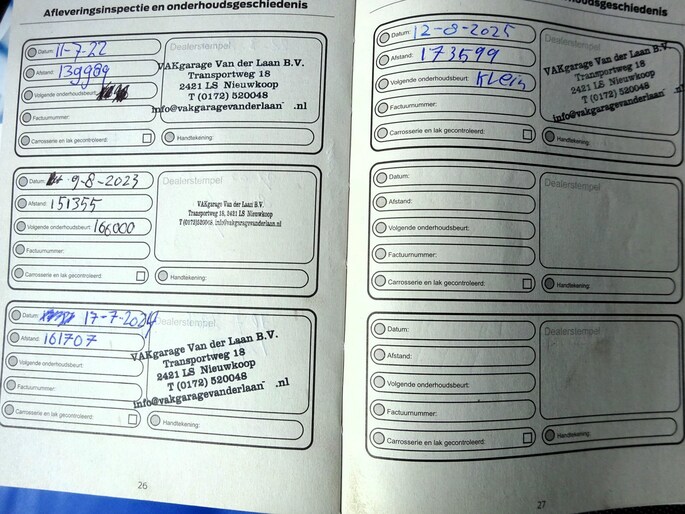 Afleveringsinspectie en onderhoudsgeschiedenis
Datum: 11-7-22
Afstand: 139989
Volgende onderhoudsbeurt:
Factuurnummer:
Carrosserie en lak gecontroleerd:
Dealerstempel
VAKgarage Van der Laan B.V.
Transportweg 18
2421 LS Nieuwkoop
T (0172) 520048
info@vakgaragevanderlaan .nl
Handtekening:
Datum: 9-8-2023
Afstand: 151355
Volgende onderhoudsbeurt: 166000
Factuurnummer:
Carrosserie en lak gecontroleerd:
Dealerstempel
VAKgarage Van der Laan B.V.
Transportweg 18, 2421 LS Nieuwkoop
T (0172)520048, info@vakgaragevanderlaan.nl
Handtekening:
Datum: 17-7-2024
Afstand: 161707
Volgende onderhoudsbeurt:
Factuurnummer:
Carrosserie en lak gecontroleerd:
Dealerstempel
VAKgarage Van der Laan B.V.
Transportweg 18
2421 LS Nieuwkoop
T (0172) 520048
info@vakgaragevanderlaan .nl
Handtekening:
26
onderhoudsgeschiedenis
Datum: 12-8-2025
Afstand: 173599
Volgende onderhoudsbeurt: Klein
Factuurnummer:
Carrosserie en lak gecontroleerd:
Dealerstempel
VAKgarage Van der Laan B.V.
Transportweg 18
2421 LS Nieuwkoop
T (0172) 520048
info@vakgaragevanderlaan .nl
Handtekening:
Datum:
Afstand:
Volgende onderhoudsbeurt:
Factuurnummer:
Carrosserie en lak gecontroleerd:
Dealerstempel
Handtekening:
Datum:
Afstand:
Volgende onderhoudsbeurt:
Factuurnummer:
Carrosserie en lak gecontroleerd:
Dealerstempel
Handtekening:
27